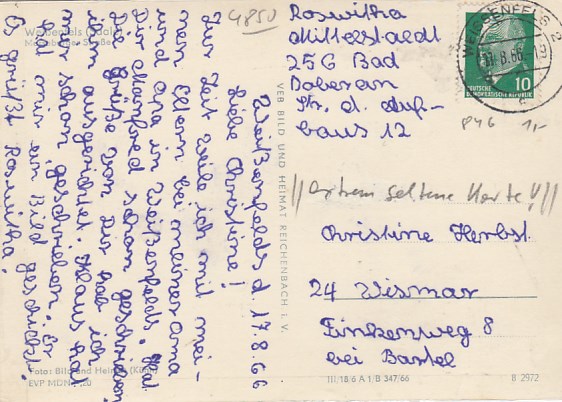 Weißenfels (Saale)
4850
Weißenfels d. 17.8.66
Liebe Christine!
Zur Zeit weile ich mit mei-
nen Eltern bei meiner Oma
und Opa in Weißenfels. Hat
Dir Manfred schon geschrieben?
Die Grüße von Dir hab ich
ihm ausgerichtet. Klaus hat
mir schon geschrieben. Er
hat mir ein Bild geschickt.
Es grüßt Roswitha.
Foto: Bild und Heimat
EVP MDN 20
VEB BILD UND HEIMAT REICHENBACH I. V.
Roswitha
Mitterstaedt
256 Bad
Doberan
Str. d. Auf-
baus 12
WEISSENFELS 2
8.66
DEUTSCHE
DEMOKRATISCHE REPUBLIK
10
P46 1,-
//extrem seltene Karte!//
Christine Herbst
24 Wismar
Finkenweg 8
bei Bartel
III/18/6 A 1/B 347/66
B 2972